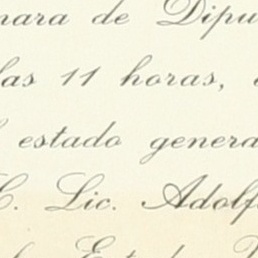 mara de Dipu
las 11 horas,
estado genera
C. Lic. Adolf
Estad